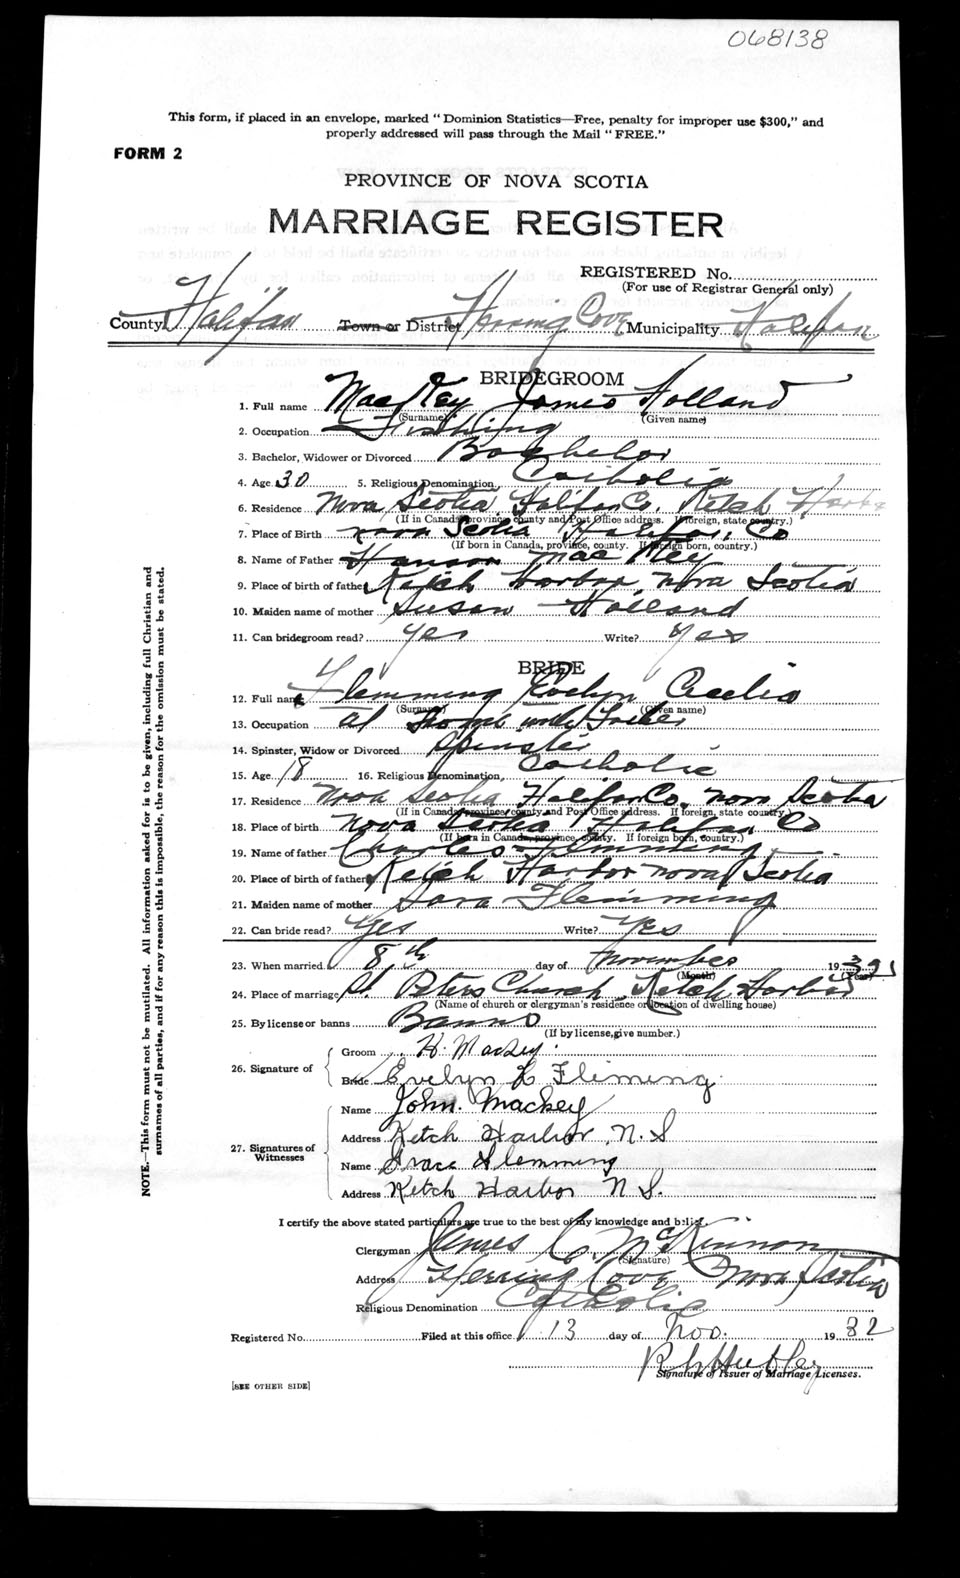 068138
This form, if placed in an envelope, marked "Dominion Statistics—Free, penalty for improper use $300," and
properly addressed will pass through the Mail "FREE."
FORM 2
PROVINCE OF NOVA SCOTIA
MARRIAGE REGISTER
REGISTERED No.
(For use of Registrar General only)
County Halifax Town or District Herring Cove Municipality Halifax
BRIDEGROOM
1. Full name MacKey James Holland
(Surname) (Given name)
2. Occupation Fishing
3. Bachelor, Widower or Divorced Bachelor
4. Age 30 5. Religious Denomination Catholic
6. Residence Nova Scotia Halifax Co. Ketch Harbor
(If in Canada, province, county and Post Office address. If foreign, state country.)
7. Place of Birth Nova Scotia Halifax, Co
(If born in Canada, province, county. If foreign born, country.)
8. Name of Father MacKey
9. Place of birth of father Ketch Harbor, Nova Scotia
10. Maiden name of mother Susan Holland
11. Can bridegroom read? Yes Write? Yes
BRIDE
12. Full name Flemming Evelyn Cecelia
(Surname) (Given name)
13. Occupation At Home with Father
14. Spinster, Widow or Divorced Spinster
15. Age 18 16. Religious Denomination, Catholic
17. Residence Nova Scotia Halifax Co, Nova Scotia
(If in Canada, province, county and Post Office address. If foreign, state country)
18. Place of birth Nova Scotia Halifax Co
(If born in Canada, province, county. If foreign born, country.)
19. Name of father Charles Flemming
20. Place of birth of father Ketch Harbor Nova Scotia
21. Maiden name of mother Sara Flemming
22. Can bride read? Yes Write? Yes
23. When married 8th day of November 193
(Month) (Year)
24. Place of marriage St. Peters Church, Ketch Harbor
(Name of church or clergyman's residence or location of dwelling house)
25. By license or banns Banns
(If by license, give number.)
26. Signature of
Groom H. Mackey.
Bride Evelyn Fleming
27. Signatures of Witnesses
Name John. Mackey
Address Ketch Harbor, N.S
Name Grace Flemming
Address Ketch Harbor N S.
I certify the above stated particulars are true to the best of my knowledge and belief.
Clergyman James C. McKinnon
(Signature)
Address Herring Cove Nova Scotia
Religious Denomination Catholic
Registered No. Filed at this office 13 day of Nov. 1932
Hubley
Signature of Issuer of Marriage Licenses.
[SEE OTHER SIDE]
NOTE.—This form must not be mutilated. All information asked for is to be given, including full Christian and
surnames of all parties, and if for any reason this is impossible, the reason for the omission must be stated.